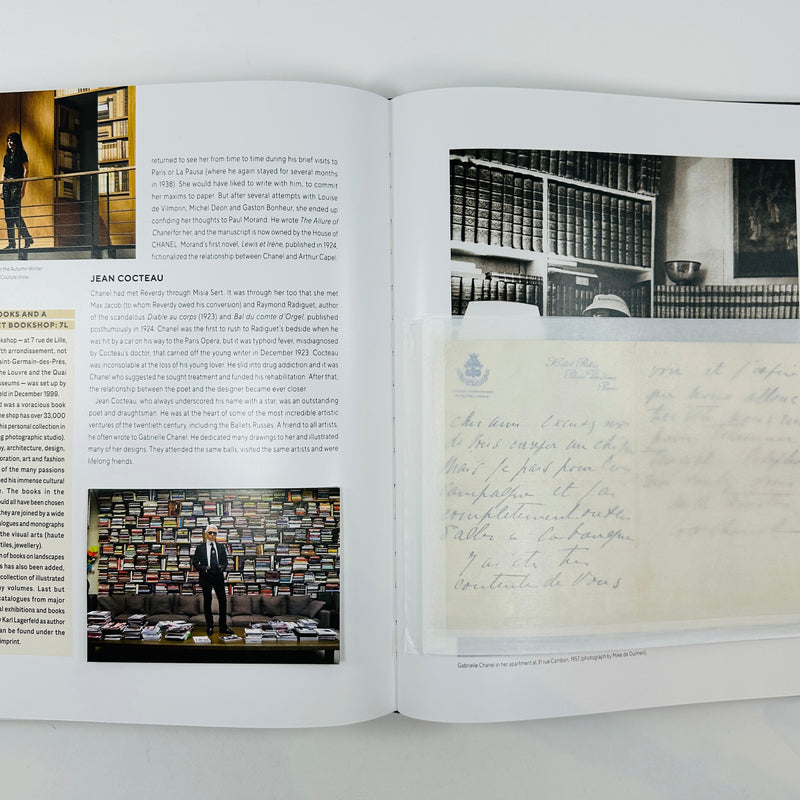 returned to see her from time to time during his brief visits to
Paris or La Pausa (where he again stayed for several months
in 1938). She would have liked to write with him, to commit
her maxims to paper. But after several attempts with Louise
de Vilmorin, Michel Déon and Gaston Bonheur, she ended up
confiding her thoughts to Paul Morand. He wrote The Allure of
Chanel for her, and the manuscript is now owned by the House of
CHANEL. Morand's first novel, Lewis et Irène, published in 1924,
fictionalized the relationship between Chanel and Arthur Capel.
JEAN COCTEAU
Chanel had met Reverdy through Misia Sert. It was through her too that she met
Max Jacob (to whom Reverdy owed his conversion) and Raymond Radiguet, author
of the scandalous Diable au corps (1923) and Bal du comte d'Orgel, published
posthumously in 1924. Chanel was the first to rush to Radiguet's bedside when he
was hit by a car on his way to the Paris Opéra, but it was typhoid fever, misdiagnosed
by Cocteau's doctor, that carried off the young writer in December 1923. Cocteau
was inconsolable at the loss of his young lover. He slid into drug addiction and it was
Chanel who suggested he sought treatment and funded his rehabilitation. After that,
the relationship between the poet and the designer became ever closer.
Jean Cocteau, who always underscored his name with a star, was an outstanding
poet and draughtsman. He was at the heart of some of the most incredible artistic
ventures of the twentieth century, including the Ballets Russes. A friend to all artists,
he often wrote to Gabrielle Chanel. He dedicated many drawings to her and illustrated
many of her designs. They attended the same balls, visited the same artists and were
lifelong friends
the Autumn-Winter
Couture show.
BOOKS AND A
BOOKSHOP: 7L
kshop – at 7 rue de Lille,
th arrondissement, not
aint-Germain-des-Prés,
he Louvre and the Quai
useums – was set up by
eld in December 1999.
d was a voracious book
he shop has over 33,000
his personal collection in
ng photographic studio).
y, architecture, design,
oration, art and fashion
of the many passions
ed his immense cultural
e. The books in the
ould all have been chosen
they are joined by a wide
alogues and monographs
the visual arts (haute
tiles, jewellery).
on of books on landscapes
s has also been added,
collection of illustrated
y volumes. Last but
catalogues from major
al exhibitions and books
y Karl Lagerfeld as author
an be found under the
imprint.
Hôtel Ritz
Place Vendôme
Paris
cher ami excusez moi
de vous
Mais je pars pour
campagne et j'ai
complètement oublié
d'aller à la banque
J'ai été très
contente de Vous
Gabrielle Chanel in her apartment at 31 rue Cambon, 1957 (photograph by Mike de Dulmen).